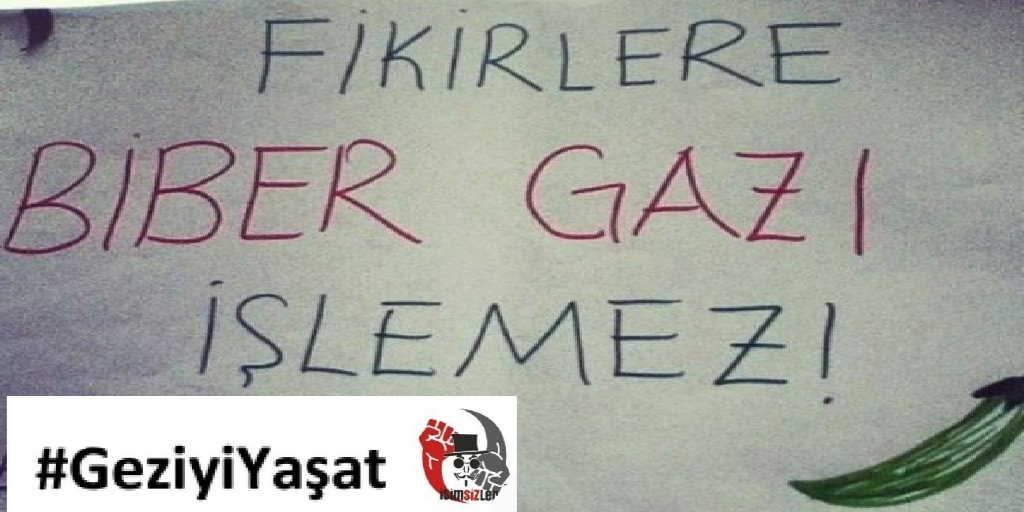 FİKİRLERE
BİBER GAZI
İŞLEMEZ!
#GeziyiYaşat
isimsizler